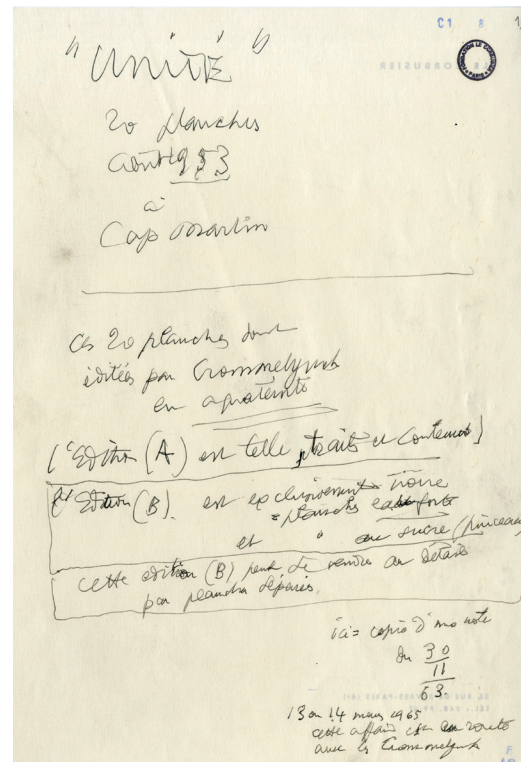 C1 8 1
LE CORBUSIER
"UNITÉ"
20 planches
Août 1953
à
Cap Martin
Ces 20 planches sont
éditées par Crommelynck
en aquateinte
L'Edition (A) est telle, traits et couleurs
Edition (B). est exclusivement noire
= planches eau forte
et " au sucre (pinceau
cette edition (B) peut se vendre au détail
par planches séparées.
ici = copie d'une note
du 30
11
63.
13 ou 14 mars 1965
cette affaire est en route
avec les Crommelynck
F